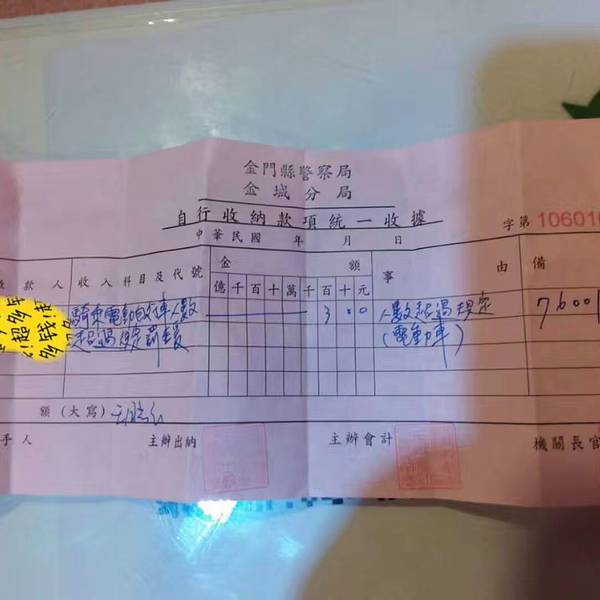 金門縣警察局
金城分局
自行收納款項統一收據
中華民國 年 月 日
字第 106010
款人 收入科目及代號 金額 事由 備
億千百十萬千百十元
騎乘電動自行車人數 300 人數超過規定 7600
超過規定罰鍰 (電動車)
額(大寫)
手人 主辦出納 主辦會計 機關長官